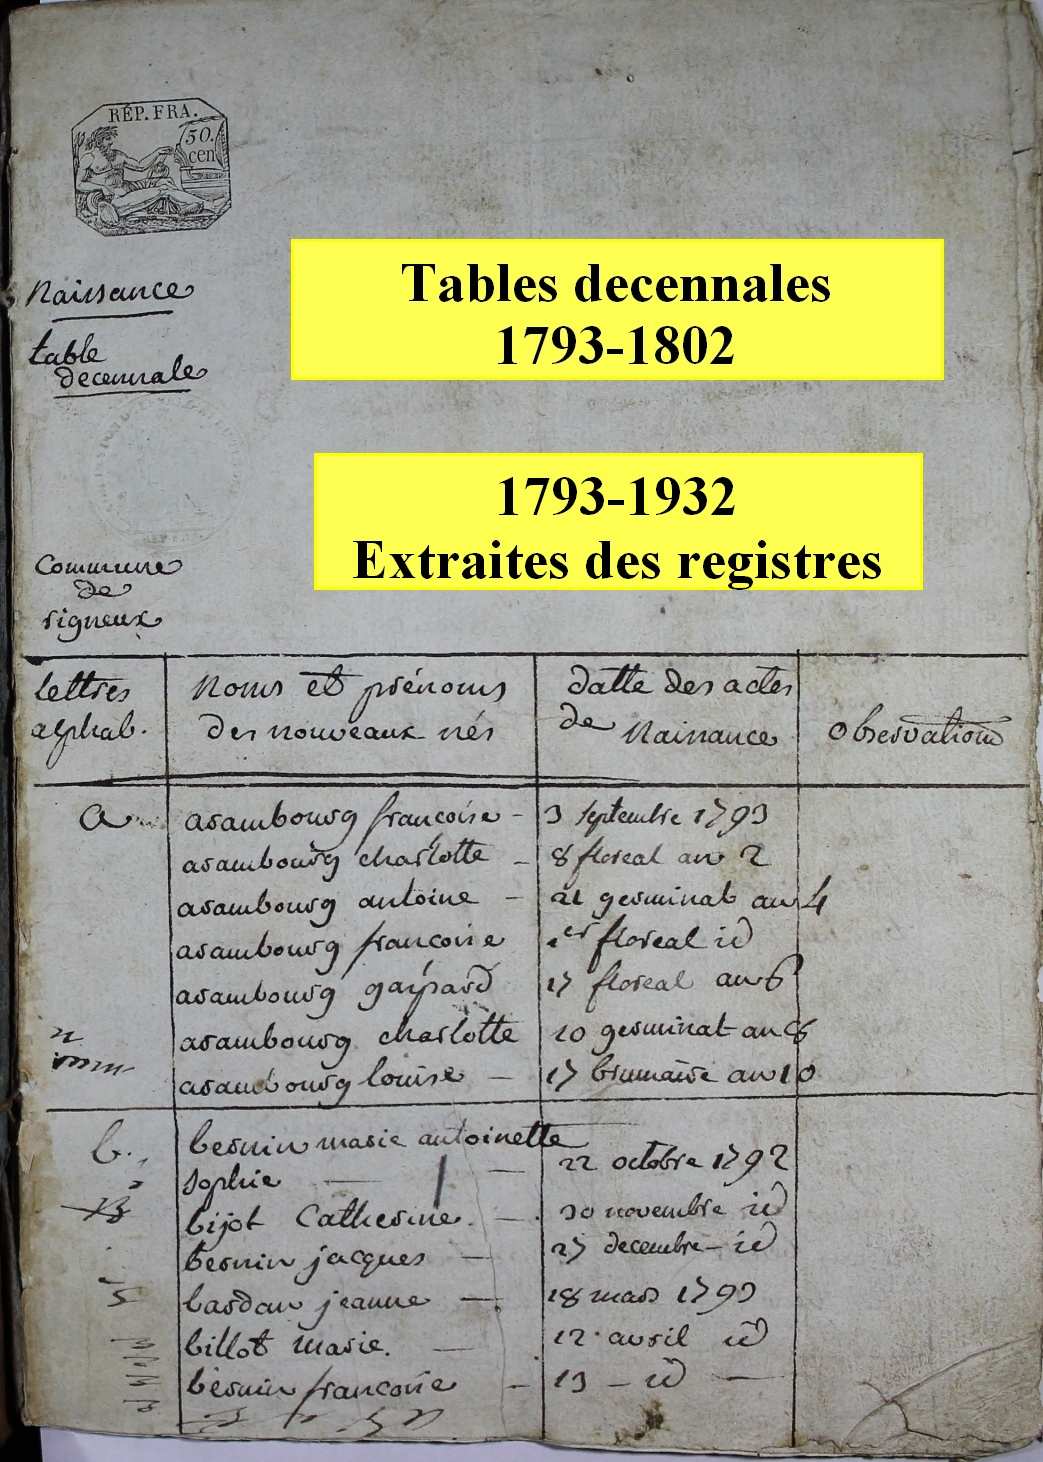 RÉP. FRA.
50.
cen
Naissance
table
decennale
Tables decennales
1793-1802
1793-1932
Extraites des registres
Commune
de
rigneux
lettres
alphab.
Noms et prénoms
des nouveaux nés
datte des actes
de Naissance
observations
a
arambourg francoise - 3 septembre 1793
arambourg charlotte - 8 floreal an 2
arambourg antoine - 21 germinal an 4
arambourg francoise 1er floreal id
arambourg gaspard 17 floreal an 6
arambourg charlotte 10 germinal an 8
arambourg louise - 17 brumaire an 10
b.
bernin marie antoinette
sophie — 22 octobre 1792
bijot Catherine. - 30 novembre id
bernin jacques - 27 decembre - id
bardan jeanne - 18 mars 1793
billot marie. - 12 avril id
bernin francoise - 13 - id -